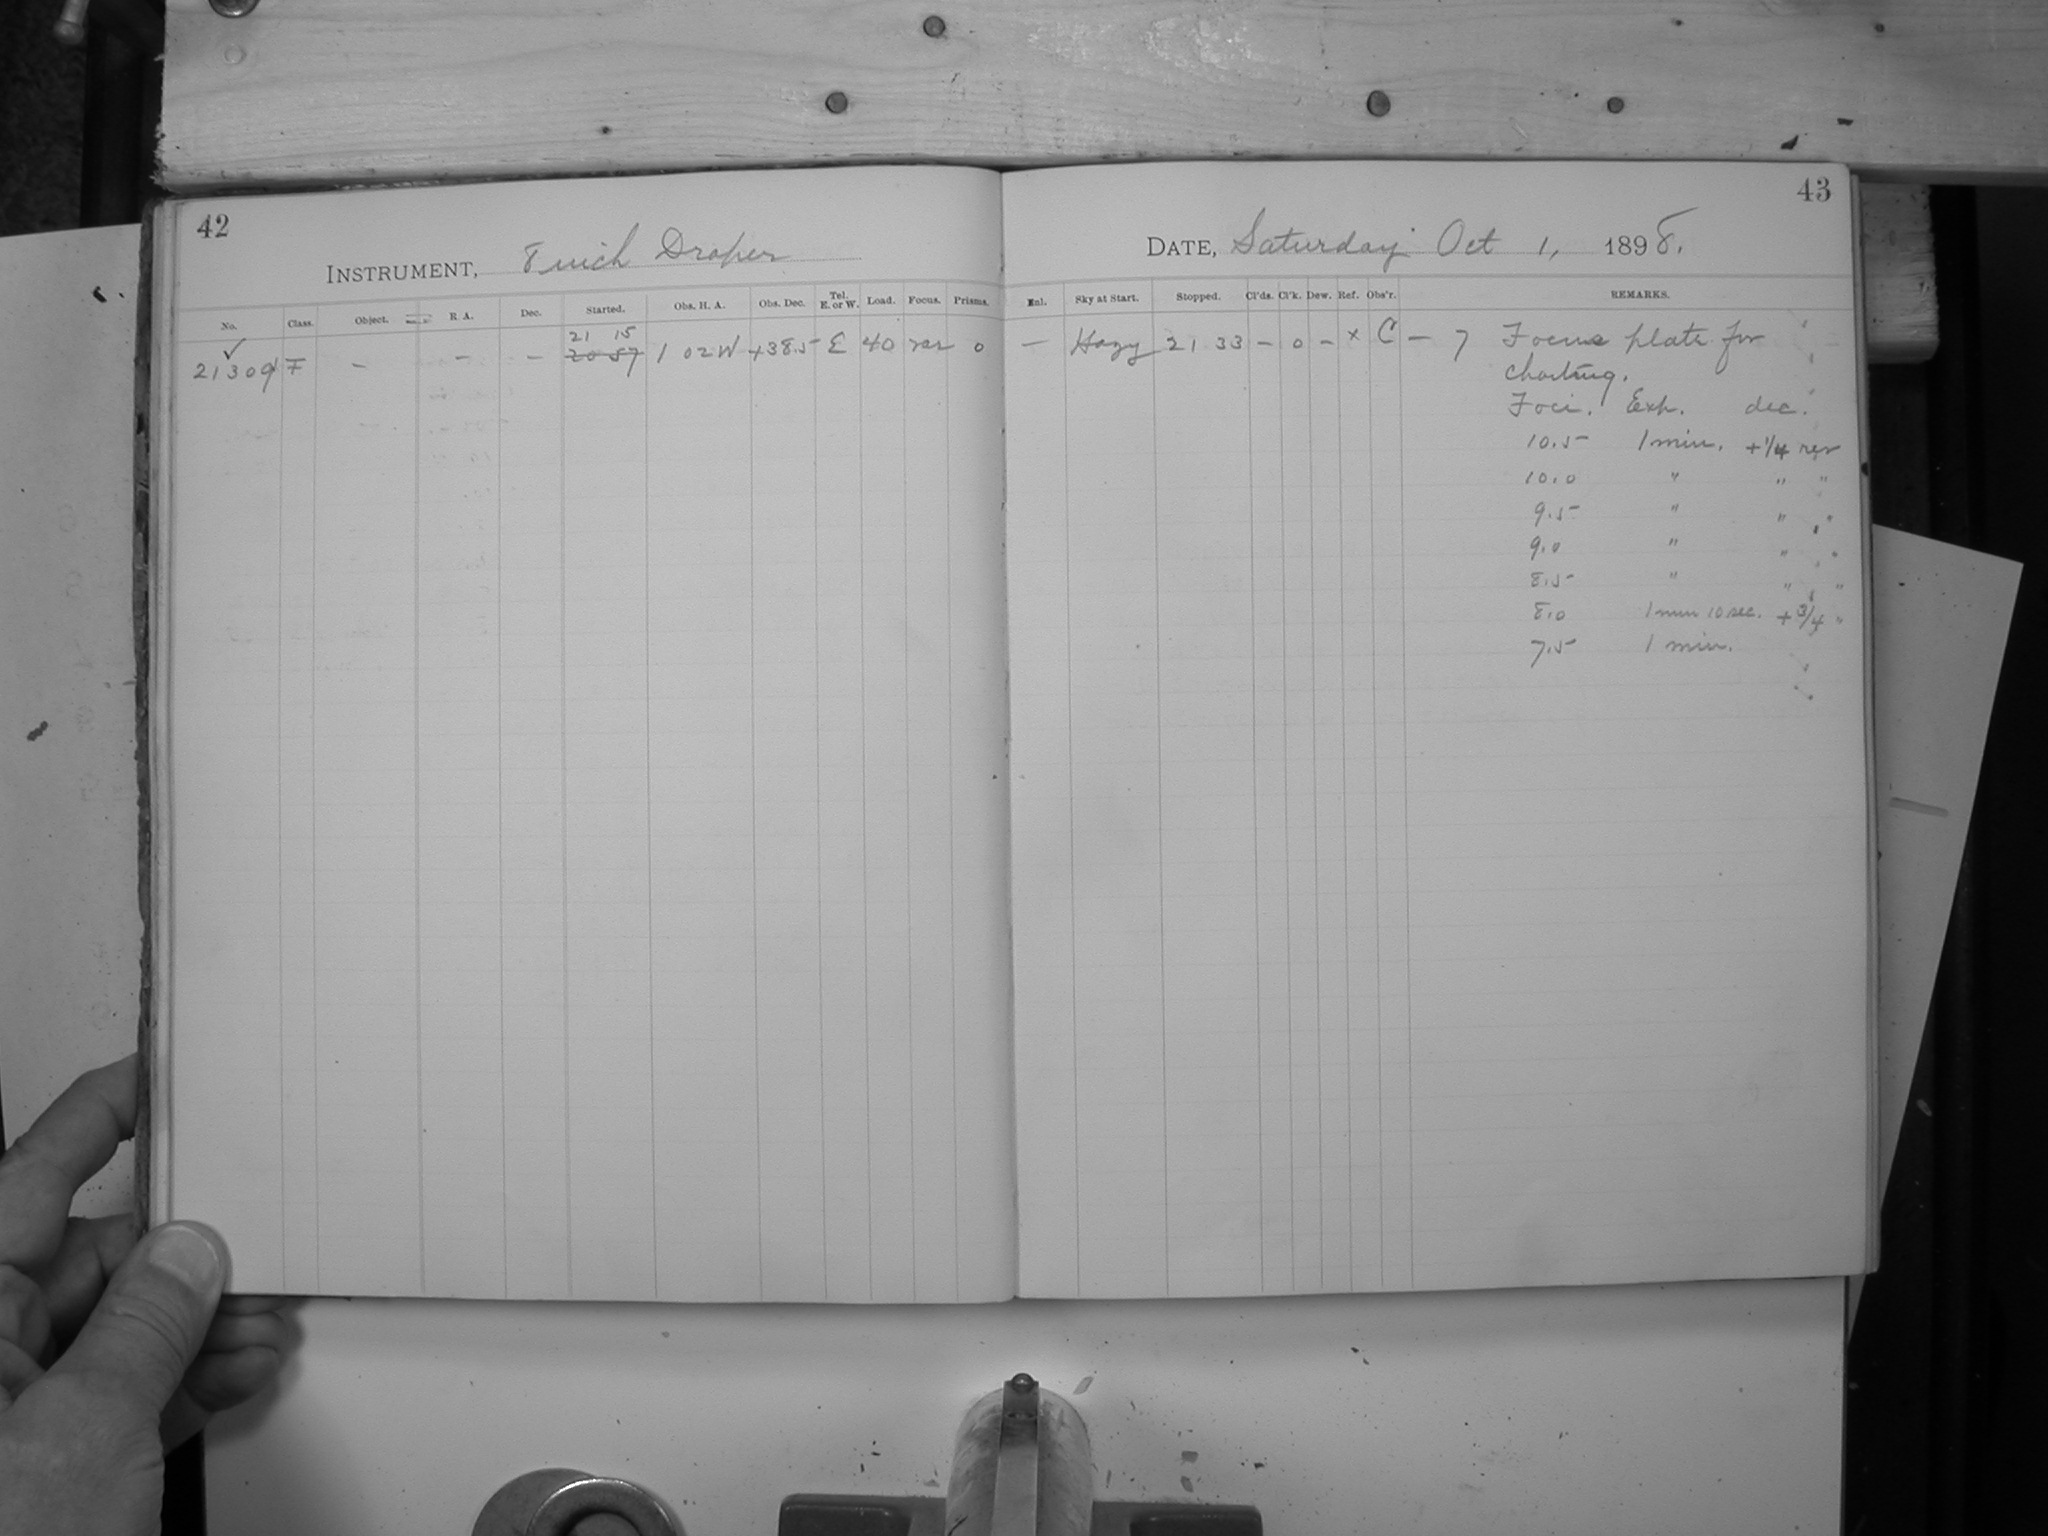 42
INSTRUMENT, 8 inch Draper
No. Class. Object. R. A. Dec. Started. Obs. H. A. Obs. Dec. Tel. E. or W. Load. Focus. Prisms.
21 15
21309 F - - - 20 57 1 02 W +38.5 E 40 var 0
43
DATE, Saturday Oct 1, 1898.
Enl. Sky at Start. Stopped. Cl'ds. Cl'k. Dew. Ref. Obs'r. REMARKS.
- Hazy 21 33 - 0 - x C - 7 Focus plate for
charting.
Foci. Exp. dec.
10.5 1 min. +1/4 rev
10.0 " " "
9.5 " " "
9.0 " " "
8.5 " " "
8.0 1 min 10 sec. +3/4 "
7.5 1 min.